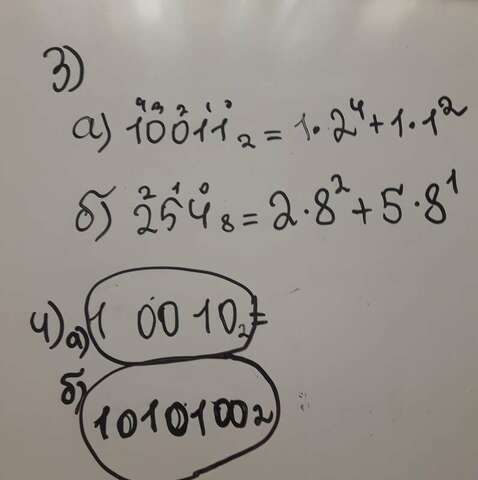 3)
4 3 2 1 0
а) 10011₂ = 1·2⁴+1·1²
2 1 0
б) 254₈ = 2·8²+5·8¹
4) а) 1 00 10₂=
б) 1010100₂